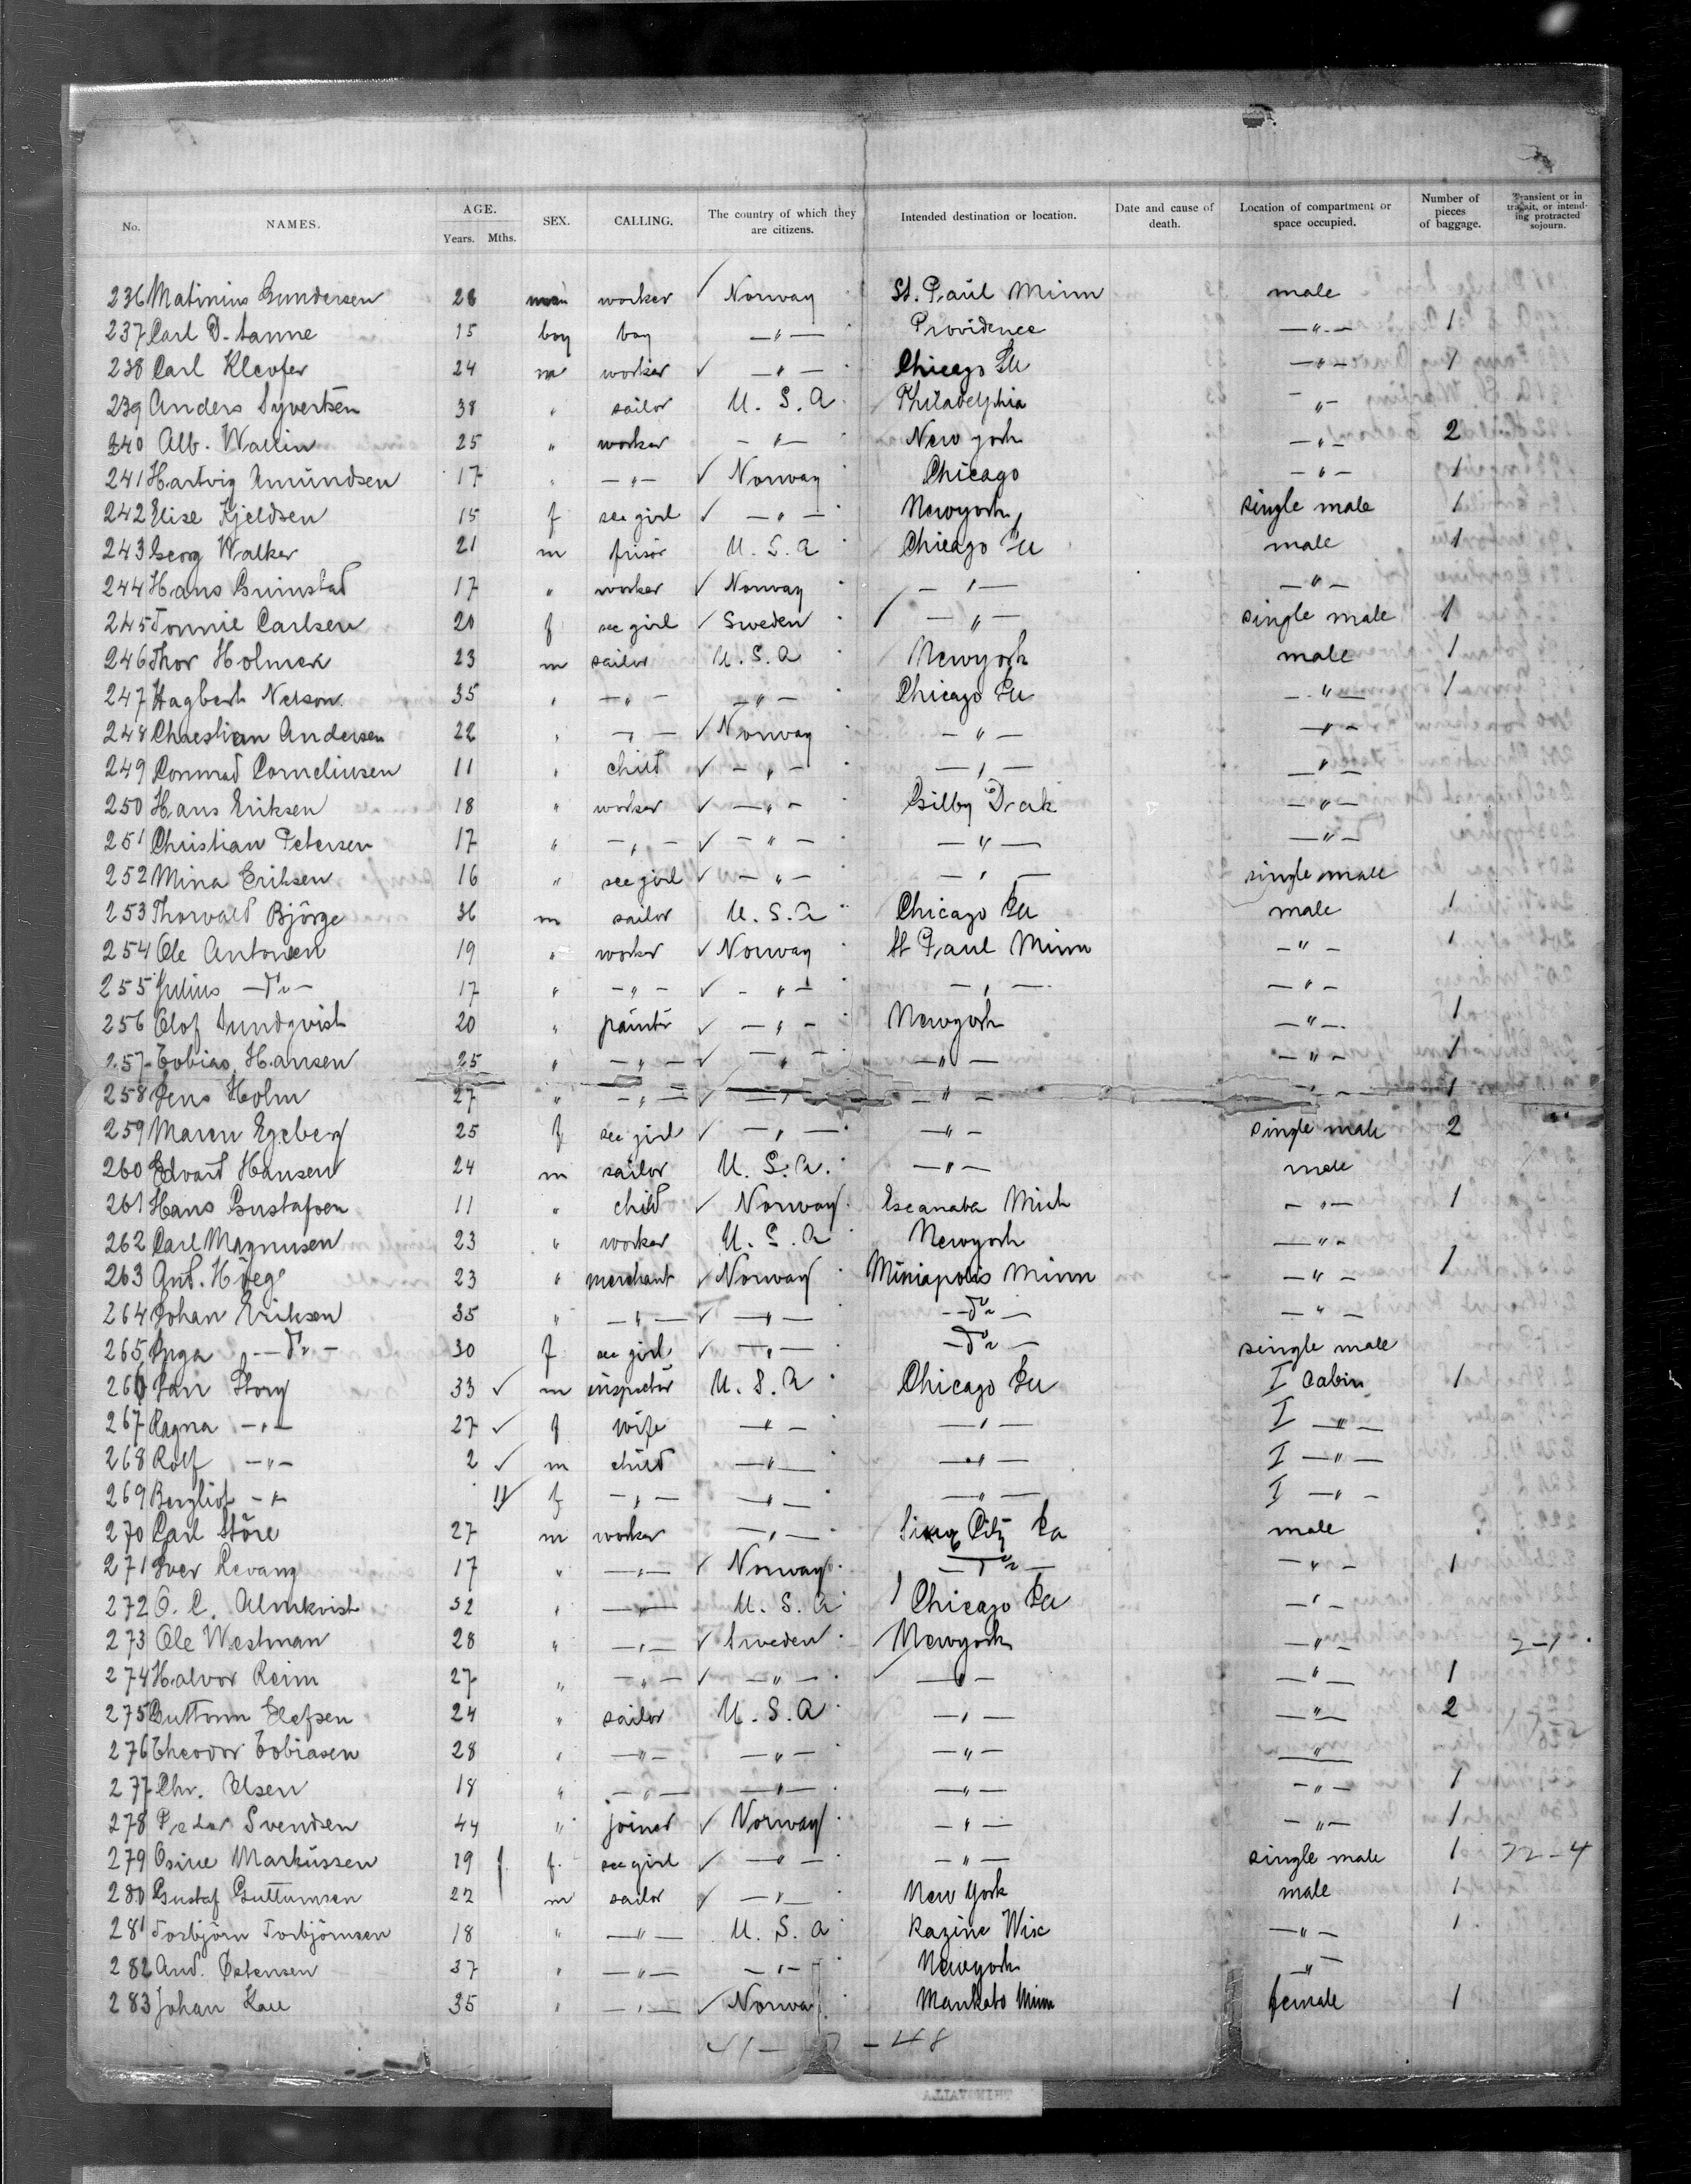 No. NAMES. AGE. Years. Mths. SEX. CALLING. The country of which they are citizens. Intended destination or location. Date and cause of death. Location of compartment or space occupied. Number of pieces of baggage. Transient or in transit, or intending protracted sojourn.
236 Matinius Gundersen 28 man worker ✓ Norway St. Paul Minn male
237 Carl D. Lanne 15 boy boy —"— Providence —"— 1
238 Carl Klevfer 24 m worker ✓ —"— Chicago Ill —"— 1
239 Anders Syvertsen 38 " sailor U. S. A Philadelphia —"—
240 Alb. Wallin 25 " worker —"— New york —"— 2
241 Hartvig Amundsen 17 " —"— ✓ Norway Chicago —"— 1
242 Elise Kjeldsen 15 f see girl ✓ —"— Newyork single male 1
243 Georg Walker 21 m frisör U. S. A Chicago Ill male 1
244 Hans Grimstad 17 " worker ✓ Norway —"— —"—
245 Tonnie Carlsen 20 f see girl ✓ Sweden —"— single male 1
246 Thor Holmen 23 m sailor U. S. A Newyork male 1
247 Hagbert Nelson 35 " —"— —"— Chicago Ill —"— 1
248 Chrestian Andersen 22 " —"— ✓ Norway —"— —"—
249 Conrad Corneliusen 11 " child ✓ —"— —"— —"—
250 Hans Eriksen 18 " worker ✓ —"— Gilby Dak —"—
251 Christian Petersen 17 " —"— ✓ —"— —"— —"—
252 Mina Eriksen 16 " see girl ✓ —"— —"— single male
253 Thorvald Björge 36 m sailor U. S. A Chicago Ill male 1
254 Ole Antonsen 19 " worker ✓ Norway St Paul Minn —"— 1
255 Julius —do— 17 " —"— ✓ —"— —"— —"—
256 Olof Sundqvist 20 " painter ✓ —"— Newyork —"— 1
257 Tobias Hansen 25 " —"— ✓ —"— —"— —"— 1
258 Jens Holm 27 " —"— ✓ —"— —"— —"— 1
259 Maren Egeberg 25 f see girl ✓ —"— —"— single male 2
260 Edvard Hansen 24 m sailor U. S. A. —"— male
261 Hans Gustafsen 11 " child ✓ Norway Escanaba Mich —"— 1
262 Carl Magnusen 23 " worker U. S. A Newyork —"—
263 And. Höeg 23 " merchant ✓ Norway Miniapolis Minn —"— 1
264 Johan Eriksen 35 " —"— ✓ —"— —do— —"—
265 Inga —do— 30 f see girl ✓ —"— —do— single male
266 Jan Story 33 ✓ m inspector U. S. A Chicago Ill I Cabin 1
267 Ragna —"— 27 ✓ f wife —"— —"— I —"—
268 Rolf —"— 2 ✓ m child —"— —"— I —"—
269 Bergliot —"— 11 ✓ f —"— —"— —"— I —"—
270 Carl Störe 27 m worker —"— City male
271 Iver Revang 17 " —"— ✓ Norway —do— —"— 1
272 O. C. Almkvist 32 " —"— U. S. A Chicago Ill —"—
273 Ole Westman 28 " —"— ✓ Sweden Newyork —"— 2-1
274 Halvor Reim 27 " —"— ✓ —"— —"— —"— 1
275 Guttorm Elefsen 24 " sailor U. S. A —"— —"— 2
276 Theodor Tobiasen 28 " —"— —"— —"— —"—
277 Chr. Olsen 18 " —"— —"— —"— —"— 1
278 Peder Svendsen 44 " joiner ✓ Norway —"— —"— 1
279 Osine Markussen 19 f. see girl ✓ —"— —"— single male 1 72-4
280 Gustaf Guttumsen 22 m sailor ✓ —"— New York male 1
281 Torbjörn Torbjörnsen 18 " —"— U. S. A Razine Wisc —"— 1
282 And. Östensen 37 " —"— —"— Newyork —"—
283 Johan Kall 35 " —"— ✓ Norway Mankato Minn female 1